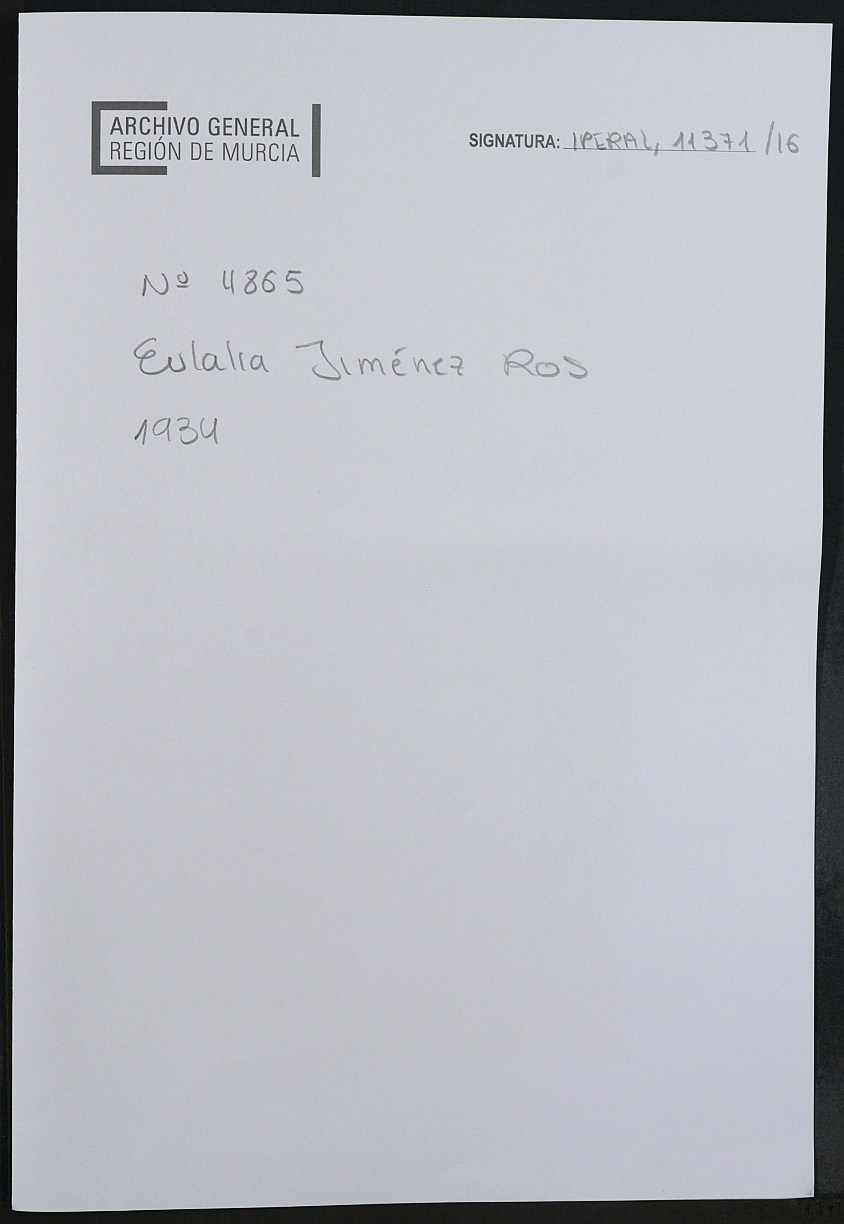 ARCHIVO GENERAL
REGIÓN DE MURCIA
SIGNATURA: IPERAL, 11371/16
Nº 4865
Eulalia Jiménez Ros
1934